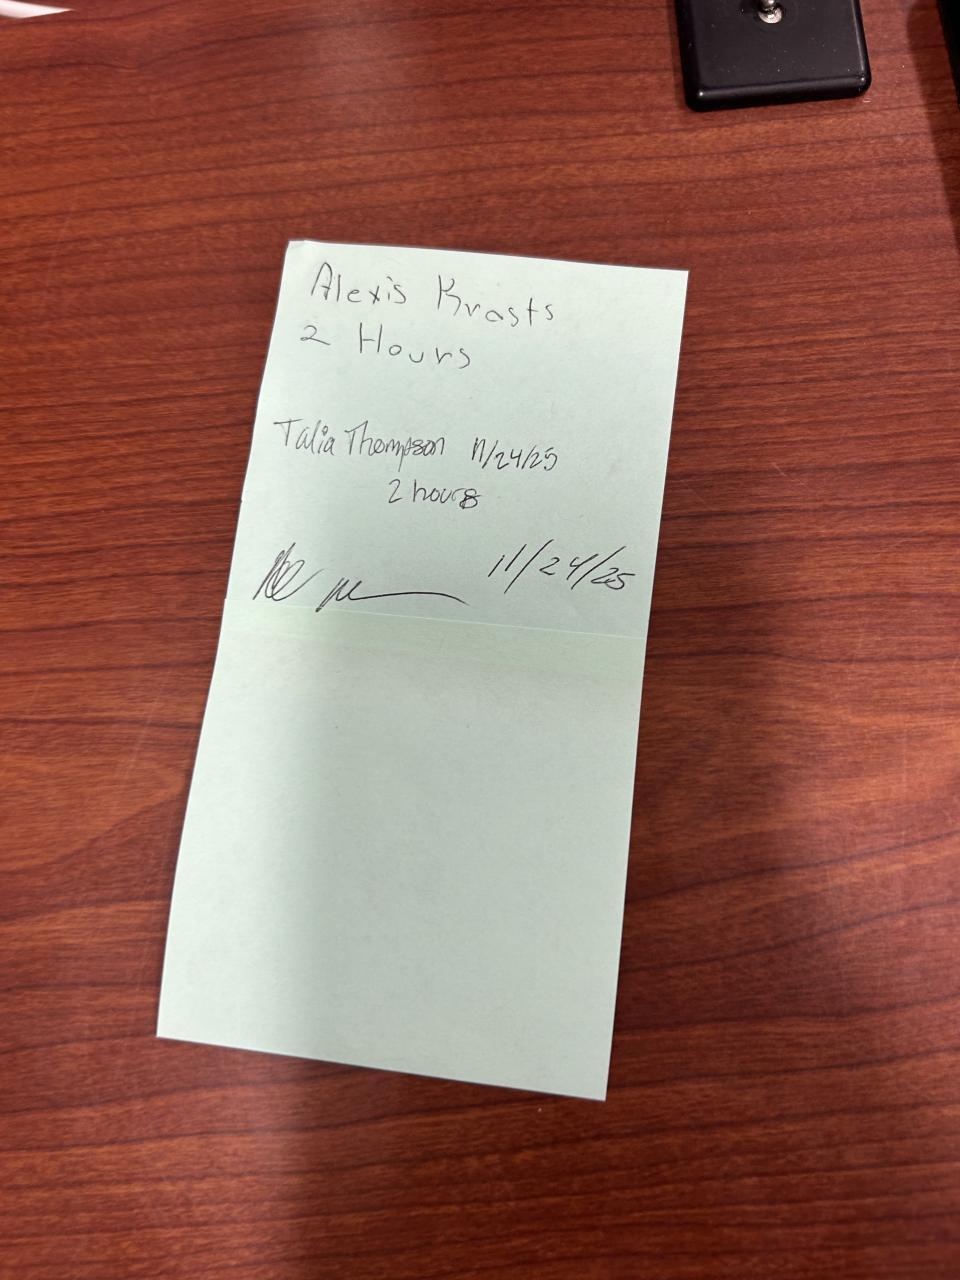 Alexis Krasts
2 Hours
Talia Thompson 11/24/25
2 hours
11/24/25